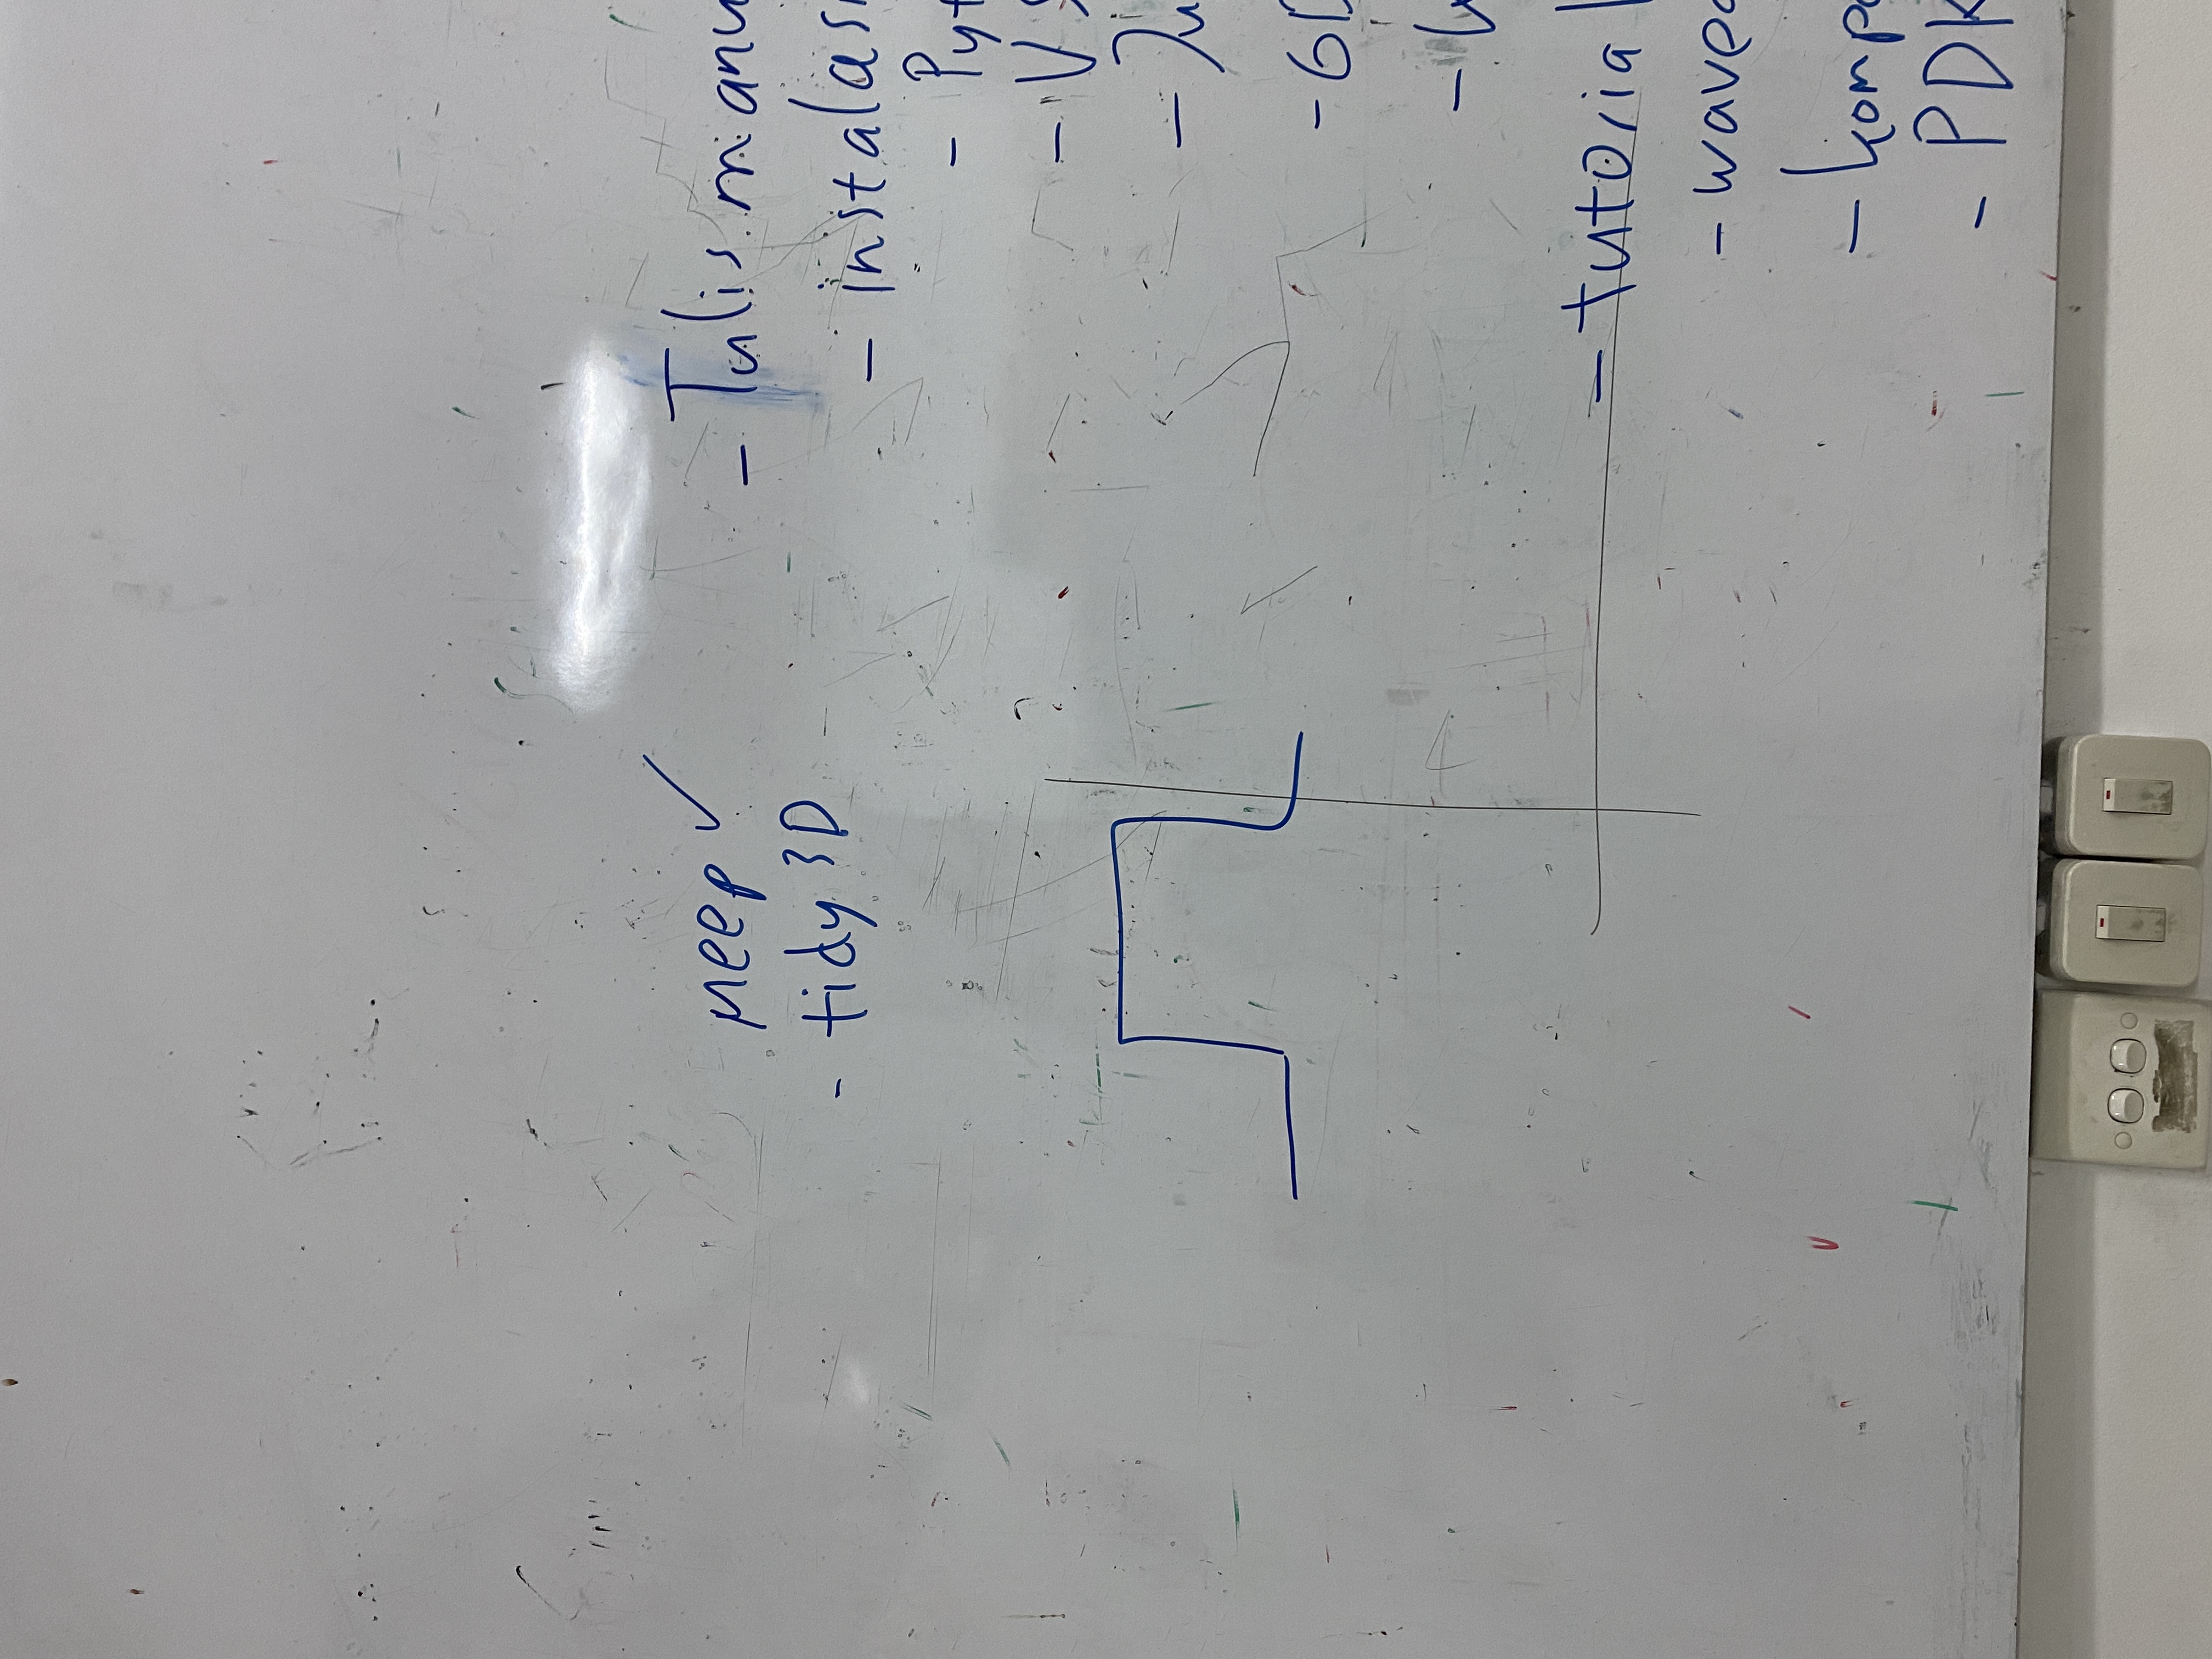 meep ✓
- tidy 3D
- Tulis manu
- instalasi
- Pyt
- VS
- Ju
- GD
- tutorial
- waveg
- kompo
- PDK